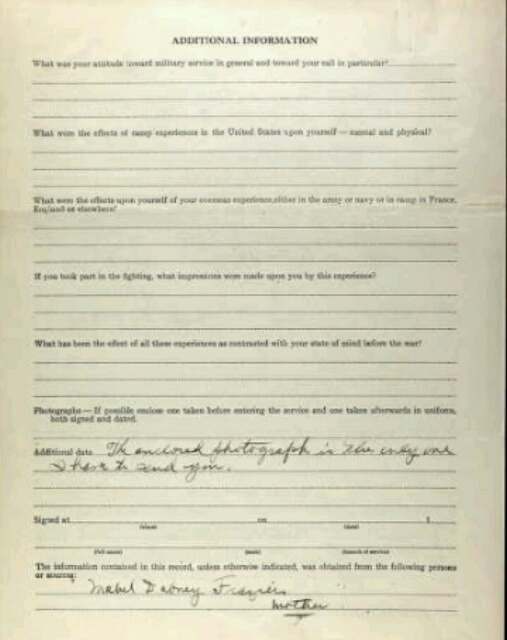 ADDITIONAL INFORMATION
What was your attitude toward military service in general and toward your call in particular?
What were the effects of camp experiences in the United States upon yourself — mental and physical?
What were the effects upon yourself of your overseas experience, either in the army or navy or in camp in France,
England or elsewhere?
If you took part in the fighting, what impressions were made upon you by this experience?
What has been the effect of all these experiences as contrasted with your state of mind before the war?
Photographs — If possible enclose one taken before entering the service and one taken afterwards in uniform,
both signed and dated.
Additional data The enclosed photograph is the only one
I have to send you.
Signed at on 1
(place) (date)
(full name) (rank) (branch of service)
The information contained in this record, unless otherwise indicated, was obtained from the following persons
or sources:
Mabel Dabney Frazier
mother